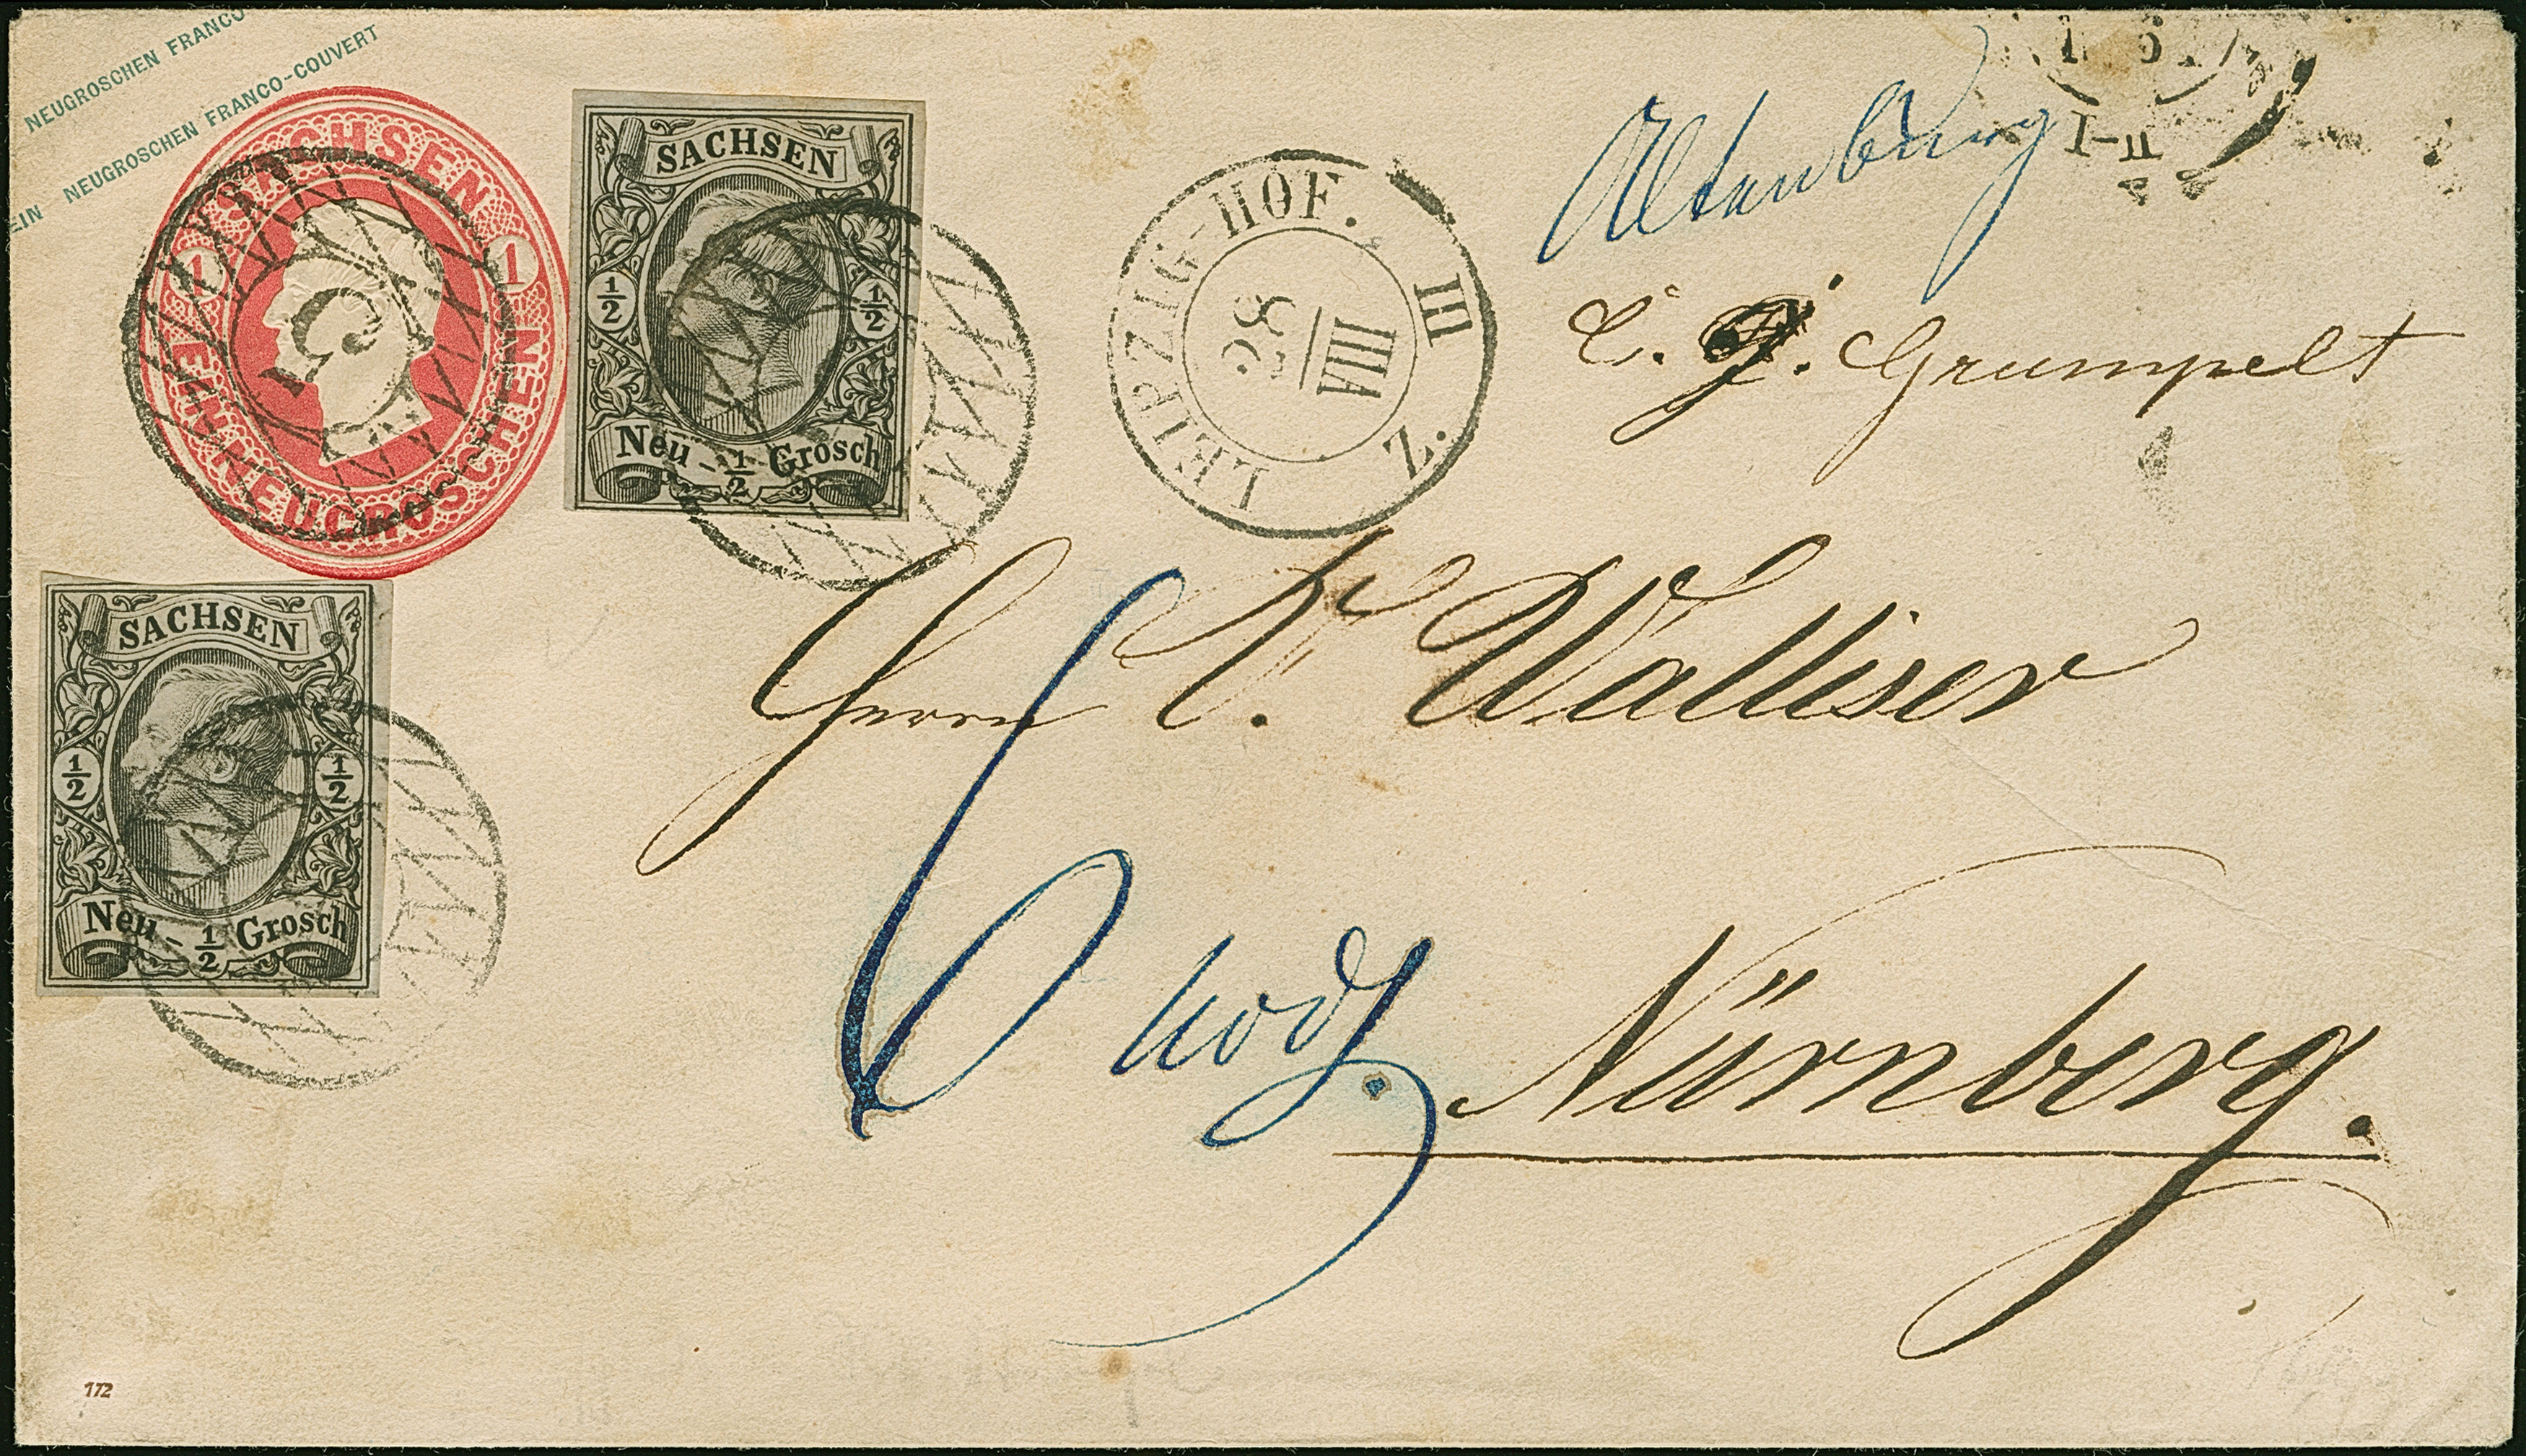 NEUGROSCHEN FRANCO
EIN NEUGROSCHEN FRANCO-COUVERT
SACHSEN
1 1
EIN NEUGROSCHEN
5
SACHSEN
½ ½
Neu-½ Grosch
LEIPZIG-HOF. III
28
VIII
Z.
Altenburg
I-II
Grumpelt
SACHSEN
½ ½
Neu-½ Grosch
Herrn Walliser
Nürnberg.
172